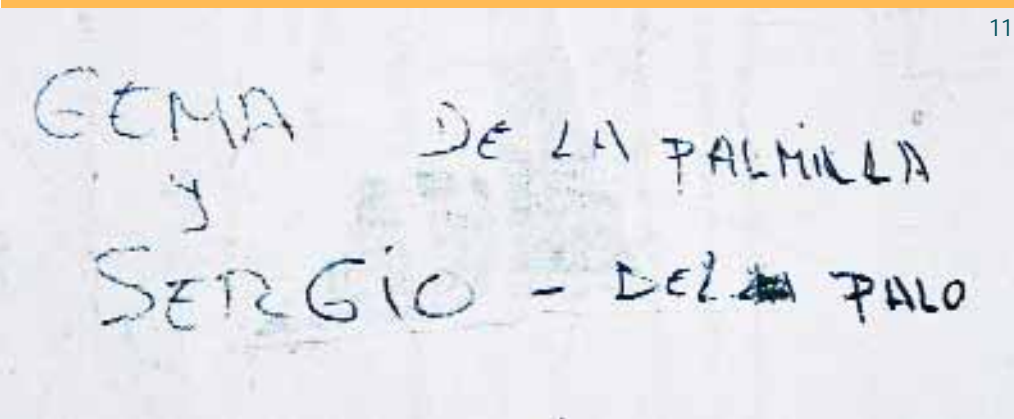 11
GEMA DE LA PALMILLA
y
SERGiO - DEL PALO